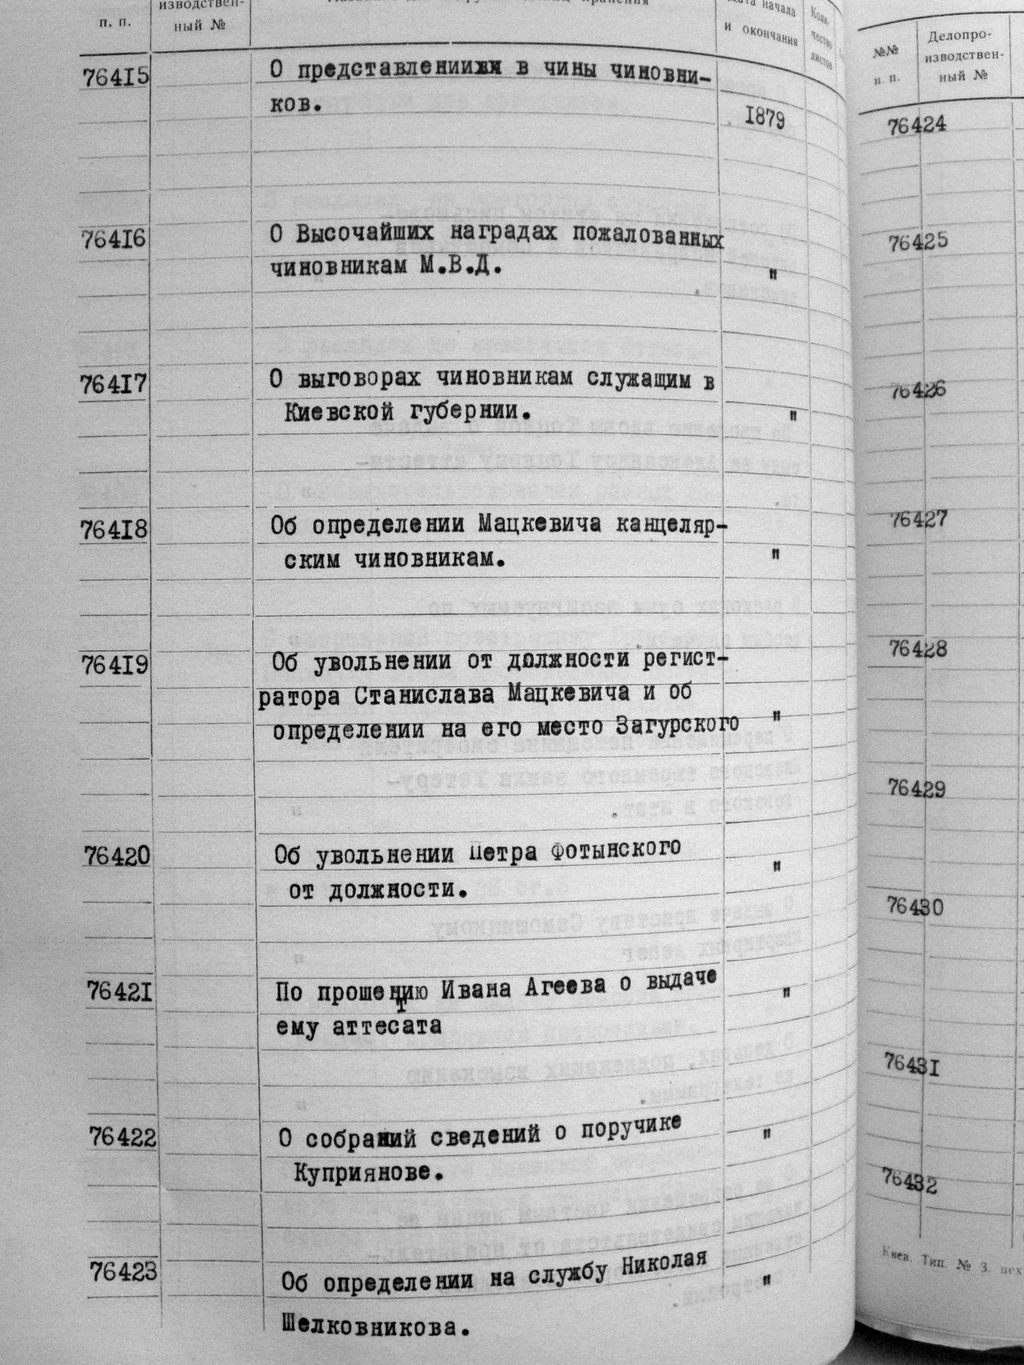 п. п.
изводствен-
ный №
и окончания
76415
О представлении в чины чиновни-
ков.
1879
76416
О Высочайших наградах пожалованных
чиновникам М.В.Д.
"
76417
О выговорах чиновникам служащим в
Киевской губернии.
"
76418
Об определении Мацкевича канцеляр-
ским чиновникам.
"
76419
Об увольнении от должности регист-
ратора Станислава Мацкевича и об
определении на его место Загурского "
76420
Об увольнении Петра Фотынского
от должности.
"
76421
По прошению Ивана Агеева о выдаче "
т
ему аттесата
76422
О собраний сведений о поручике "
Куприянове.
76423
Об определении на службу Николая "
Шелковникова.
№№
п. п.
Делопро-
изводствен-
ный №
76424
76425
76426
76427
76428
76429
76430
76431
76432
Киев. Тип. № 3. цех